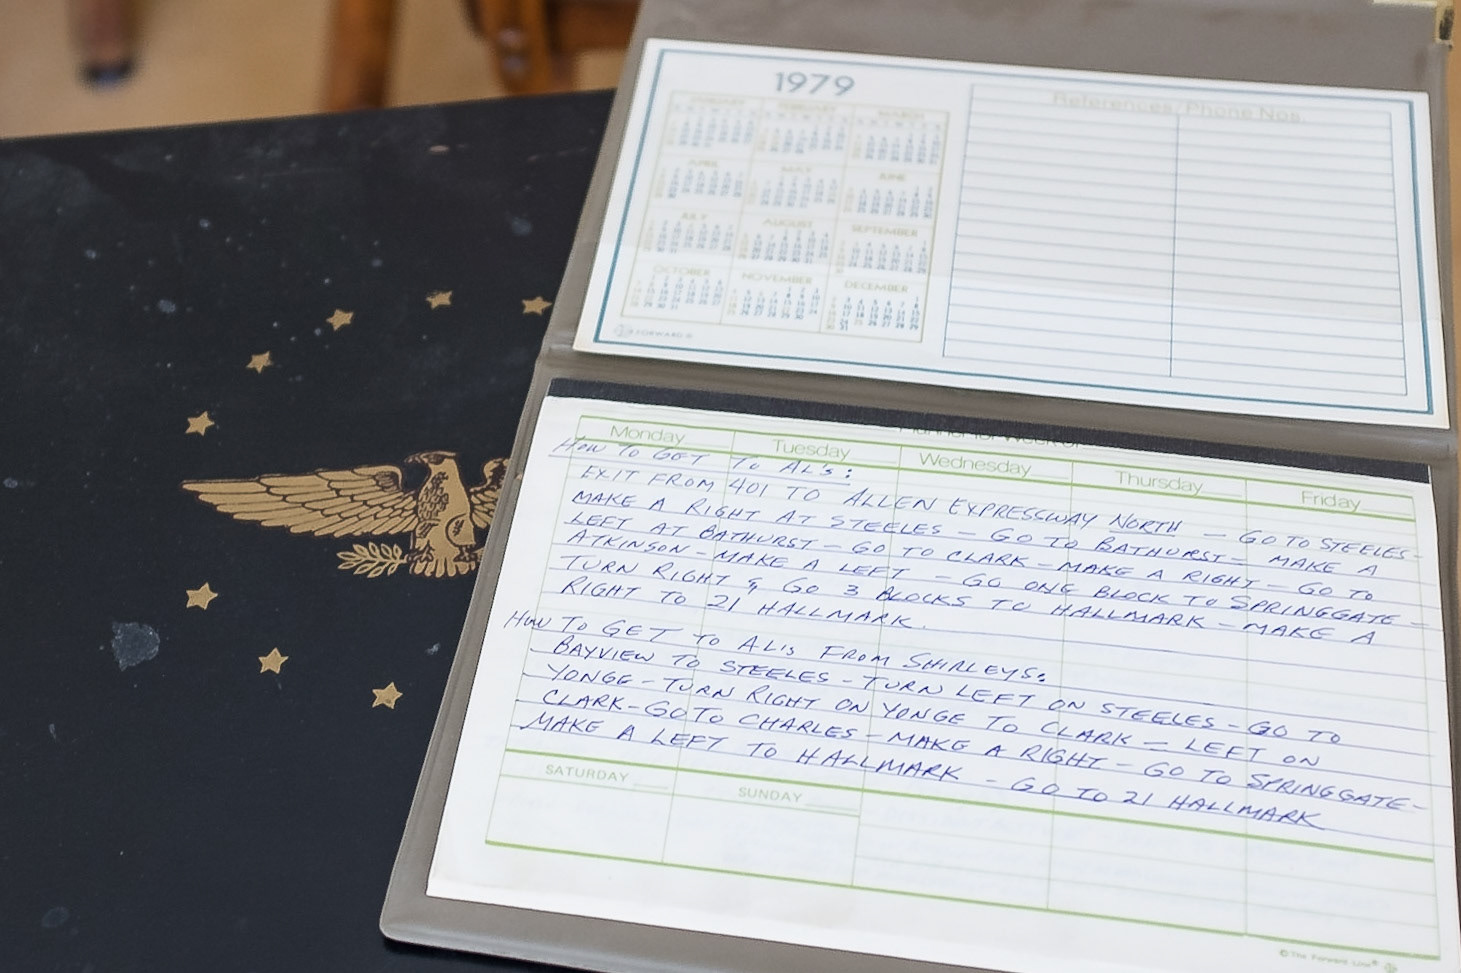 1979
References/Phone Nos.
JANUARY FEBRUARY MARCH
APRIL MAY JUNE
JULY AUGUST SEPTEMBER
OCTOBER NOVEMBER DECEMBER
Monday Tuesday Wednesday Thursday Friday
HOW TO GET TO AL'S:
EXIT FROM 401 TO ALLEN EXPRESSWAY NORTH — GO TO STEELES-
MAKE A RIGHT AT STEELES — GO TO BATHURST — MAKE A
LEFT AT BATHURST — GO TO CLARK — MAKE A RIGHT — GO TO
ATKINSON — MAKE A LEFT — GO ONE BLOCK TO SPRINGGATE —
TURN RIGHT & GO 3 BLOCKS TO HALLMARK — MAKE A
RIGHT TO 21 HALLMARK.
HOW TO GET TO ALS FROM SHIRLEYS:
BAYVIEW TO STEELES - TURN LEFT ON STEELES - GO TO
YONGE - TURN RIGHT ON YONGE TO CLARK — LEFT ON
CLARK - GO TO CHARLES - MAKE A RIGHT - GO TO SPRINGGATE -
MAKE A LEFT TO HALLMARK - GO TO 21 HALLMARK
SATURDAY SUNDAY
© The Forward Line®